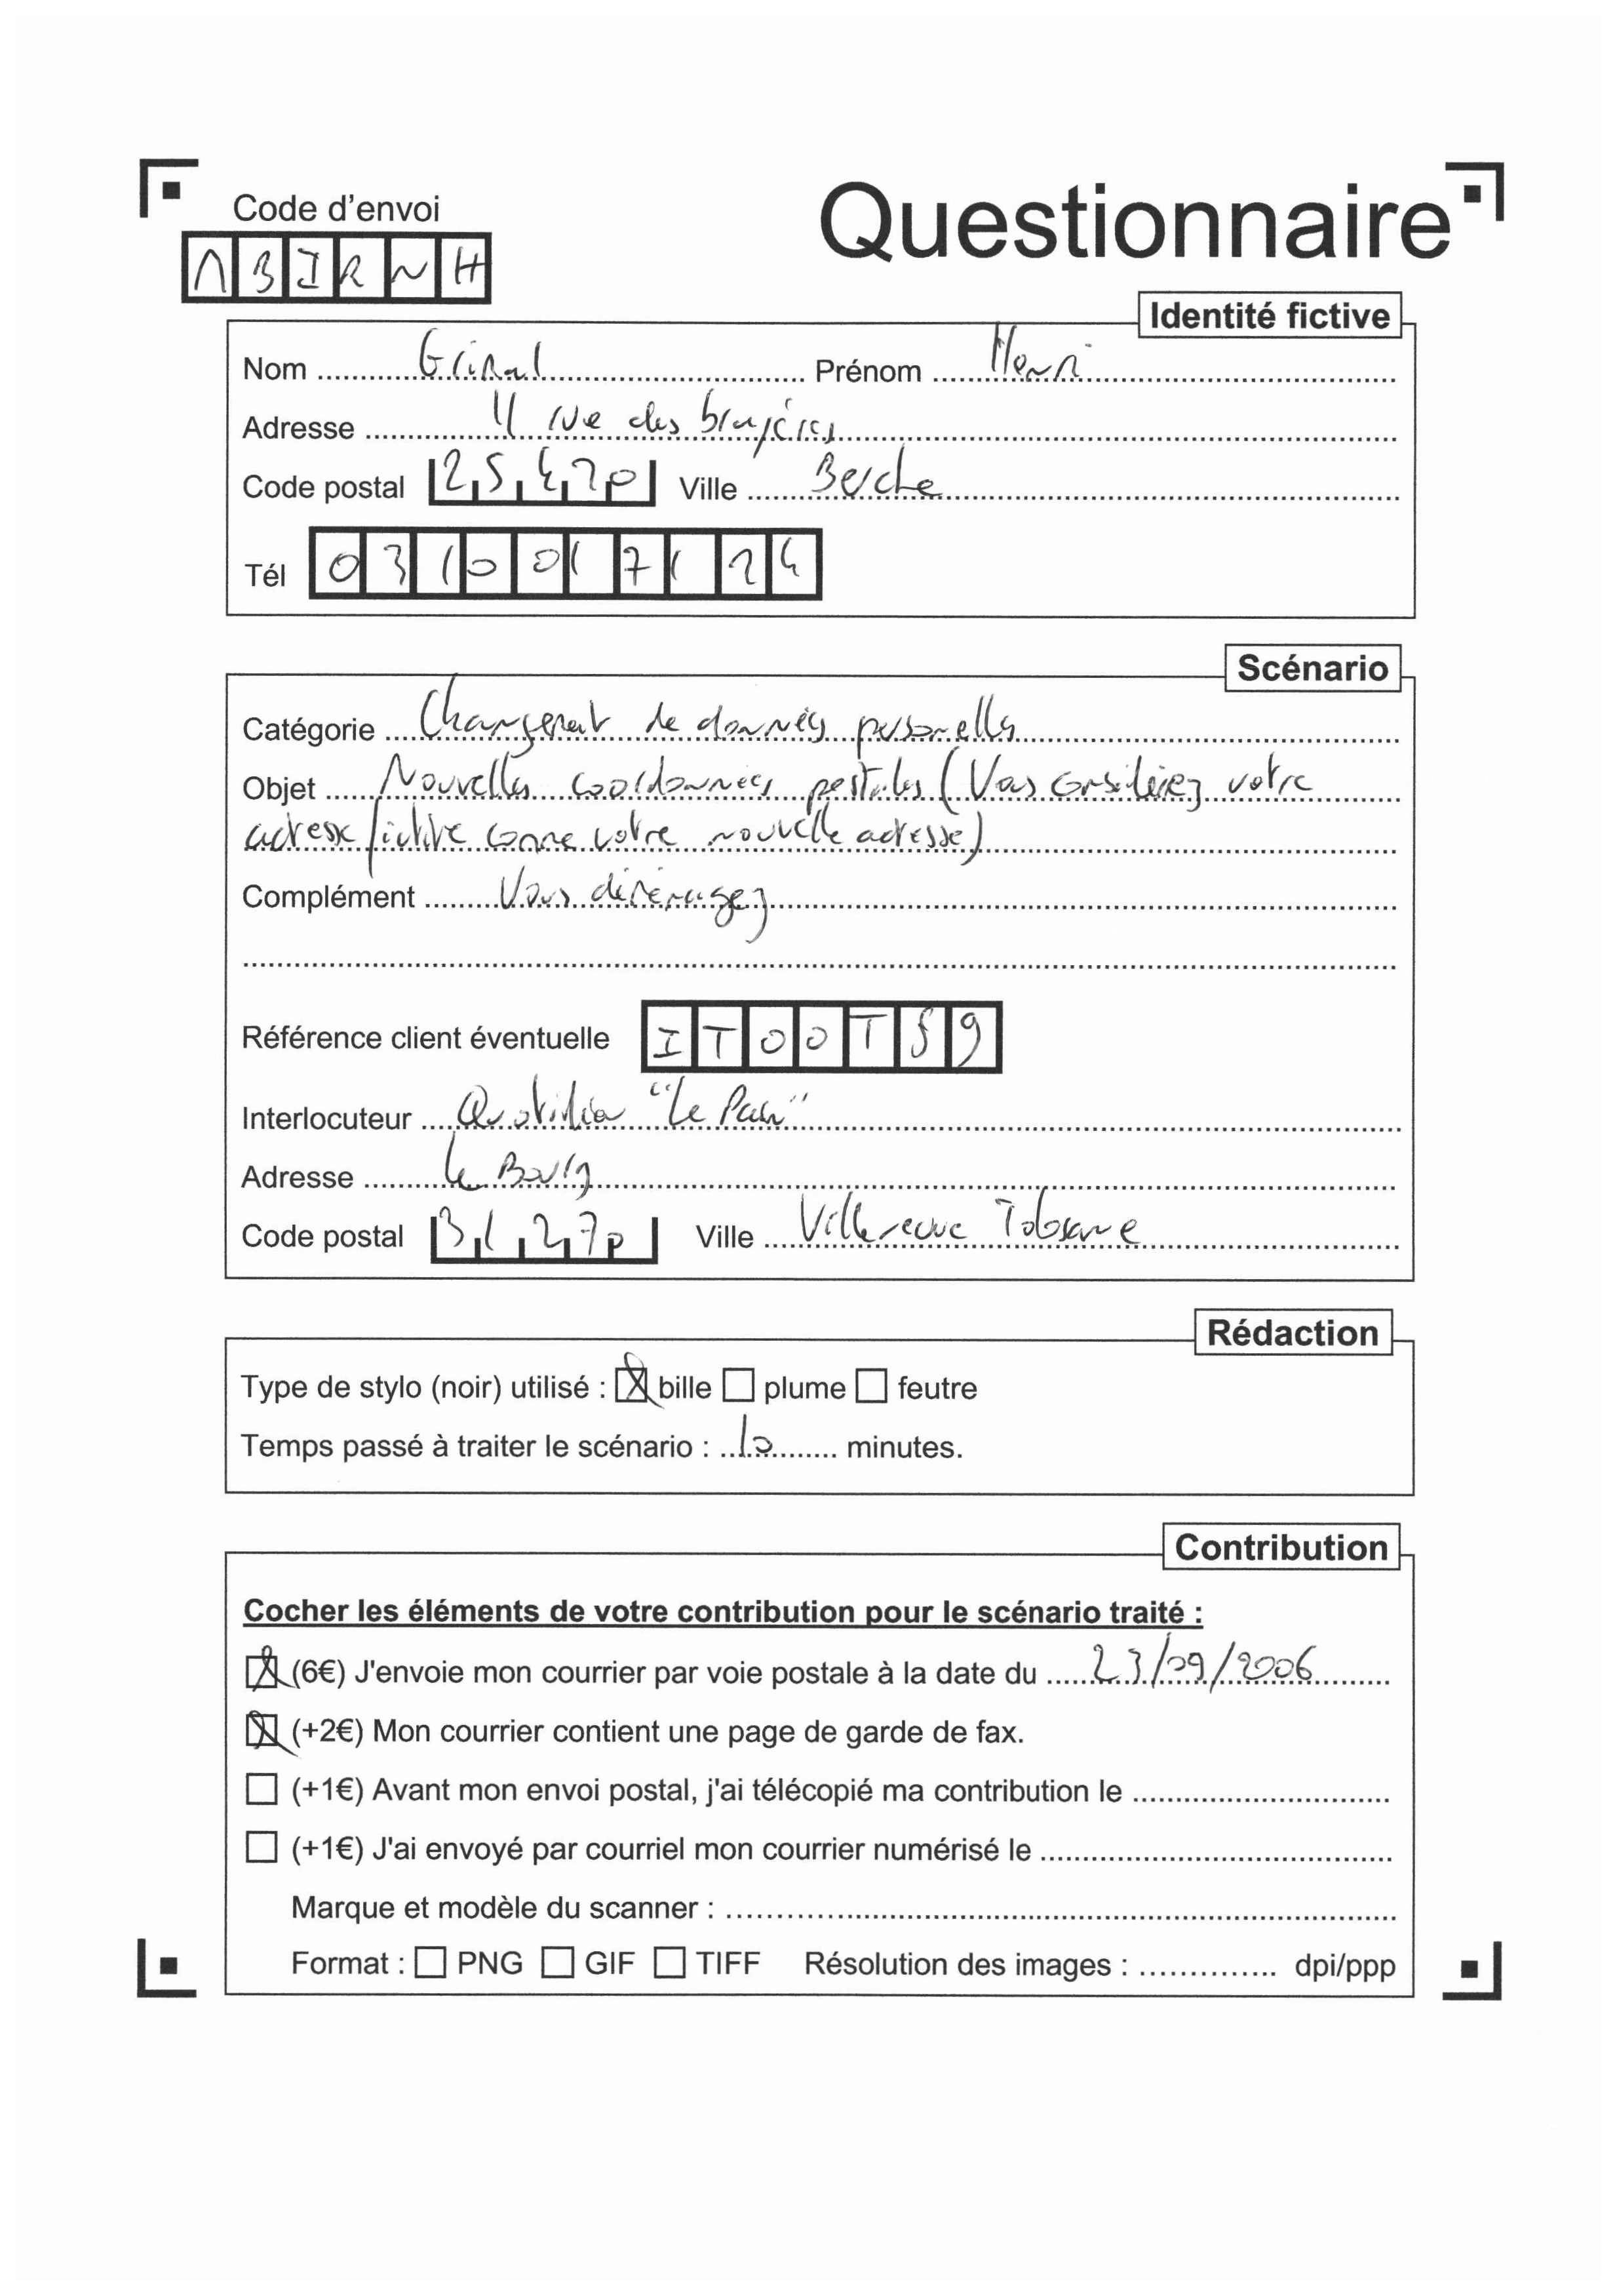 Code d'envoi
Questionnaire
ABIRNH
Identité fictive
Nom Grinal Prénom Henri
Adresse 11 rue des bruyères
Code postal 25420 Ville Berche
Tél 0310017124
Scénario
Catégorie Changement de données personnelles
Objet Nouvelles coordonnées postales (Vous considérerez votre
adresse fictive comme votre nouvelle adresse)
Complément Vous déménagez
Référence client éventuelle IT00T59
Interlocuteur Quotidien "Le Pain"
Adresse Le Bourg
Code postal 31270 Ville Villeneuve Tolosane
Rédaction
Type de stylo (noir) utilisé : bille plume feutre
Temps passé à traiter le scénario : 10 minutes.
Contribution
Cocher les éléments de votre contribution pour le scénario traité :
(6€) J'envoie mon courrier par voie postale à la date du 23/09/2006
(+2€) Mon courrier contient une page de garde de fax.
(+1€) Avant mon envoi postal, j'ai télécopié ma contribution le
(+1€) J'ai envoyé par courriel mon courrier numérisé le
Marque et modèle du scanner :
Format : PNG GIF TIFF Résolution des images : dpi/ppp